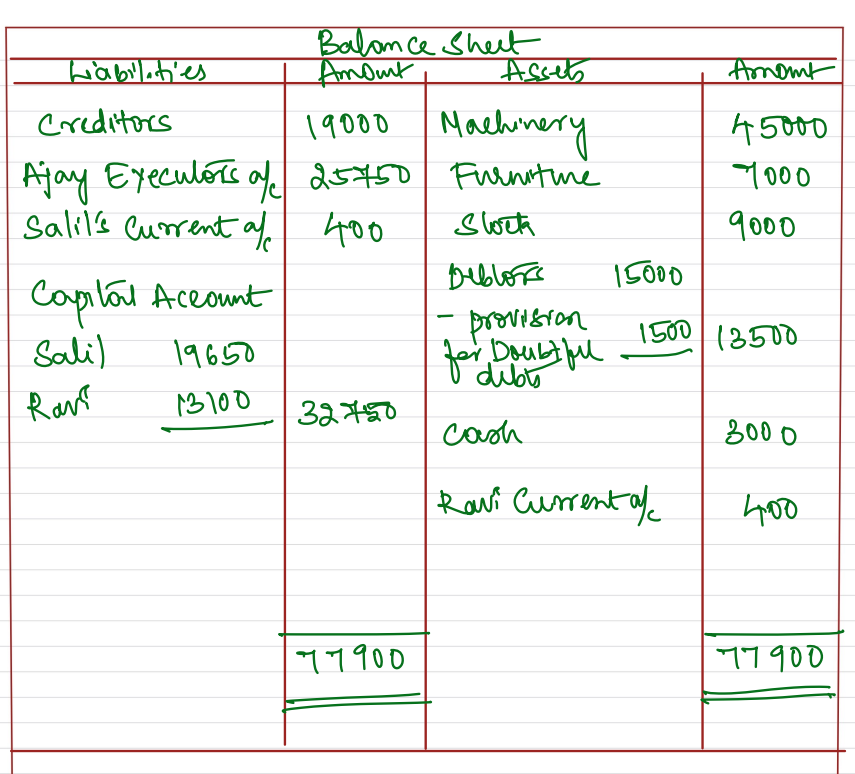 Balance Sheet
Liabilities Amount Assets Amount
Creditors 19000 Machinery 45000
Ajay Executors a/c 25750 Furniture 7000
Salil's Current a/c 400 Stock 9000
Debtors 15000
Capital Account
- provision 1500 13500
Salil 19650 for Doubtful
debts
Ravi 13100 32750
Cash 3000
Ravi Current a/c 400
77900 77900